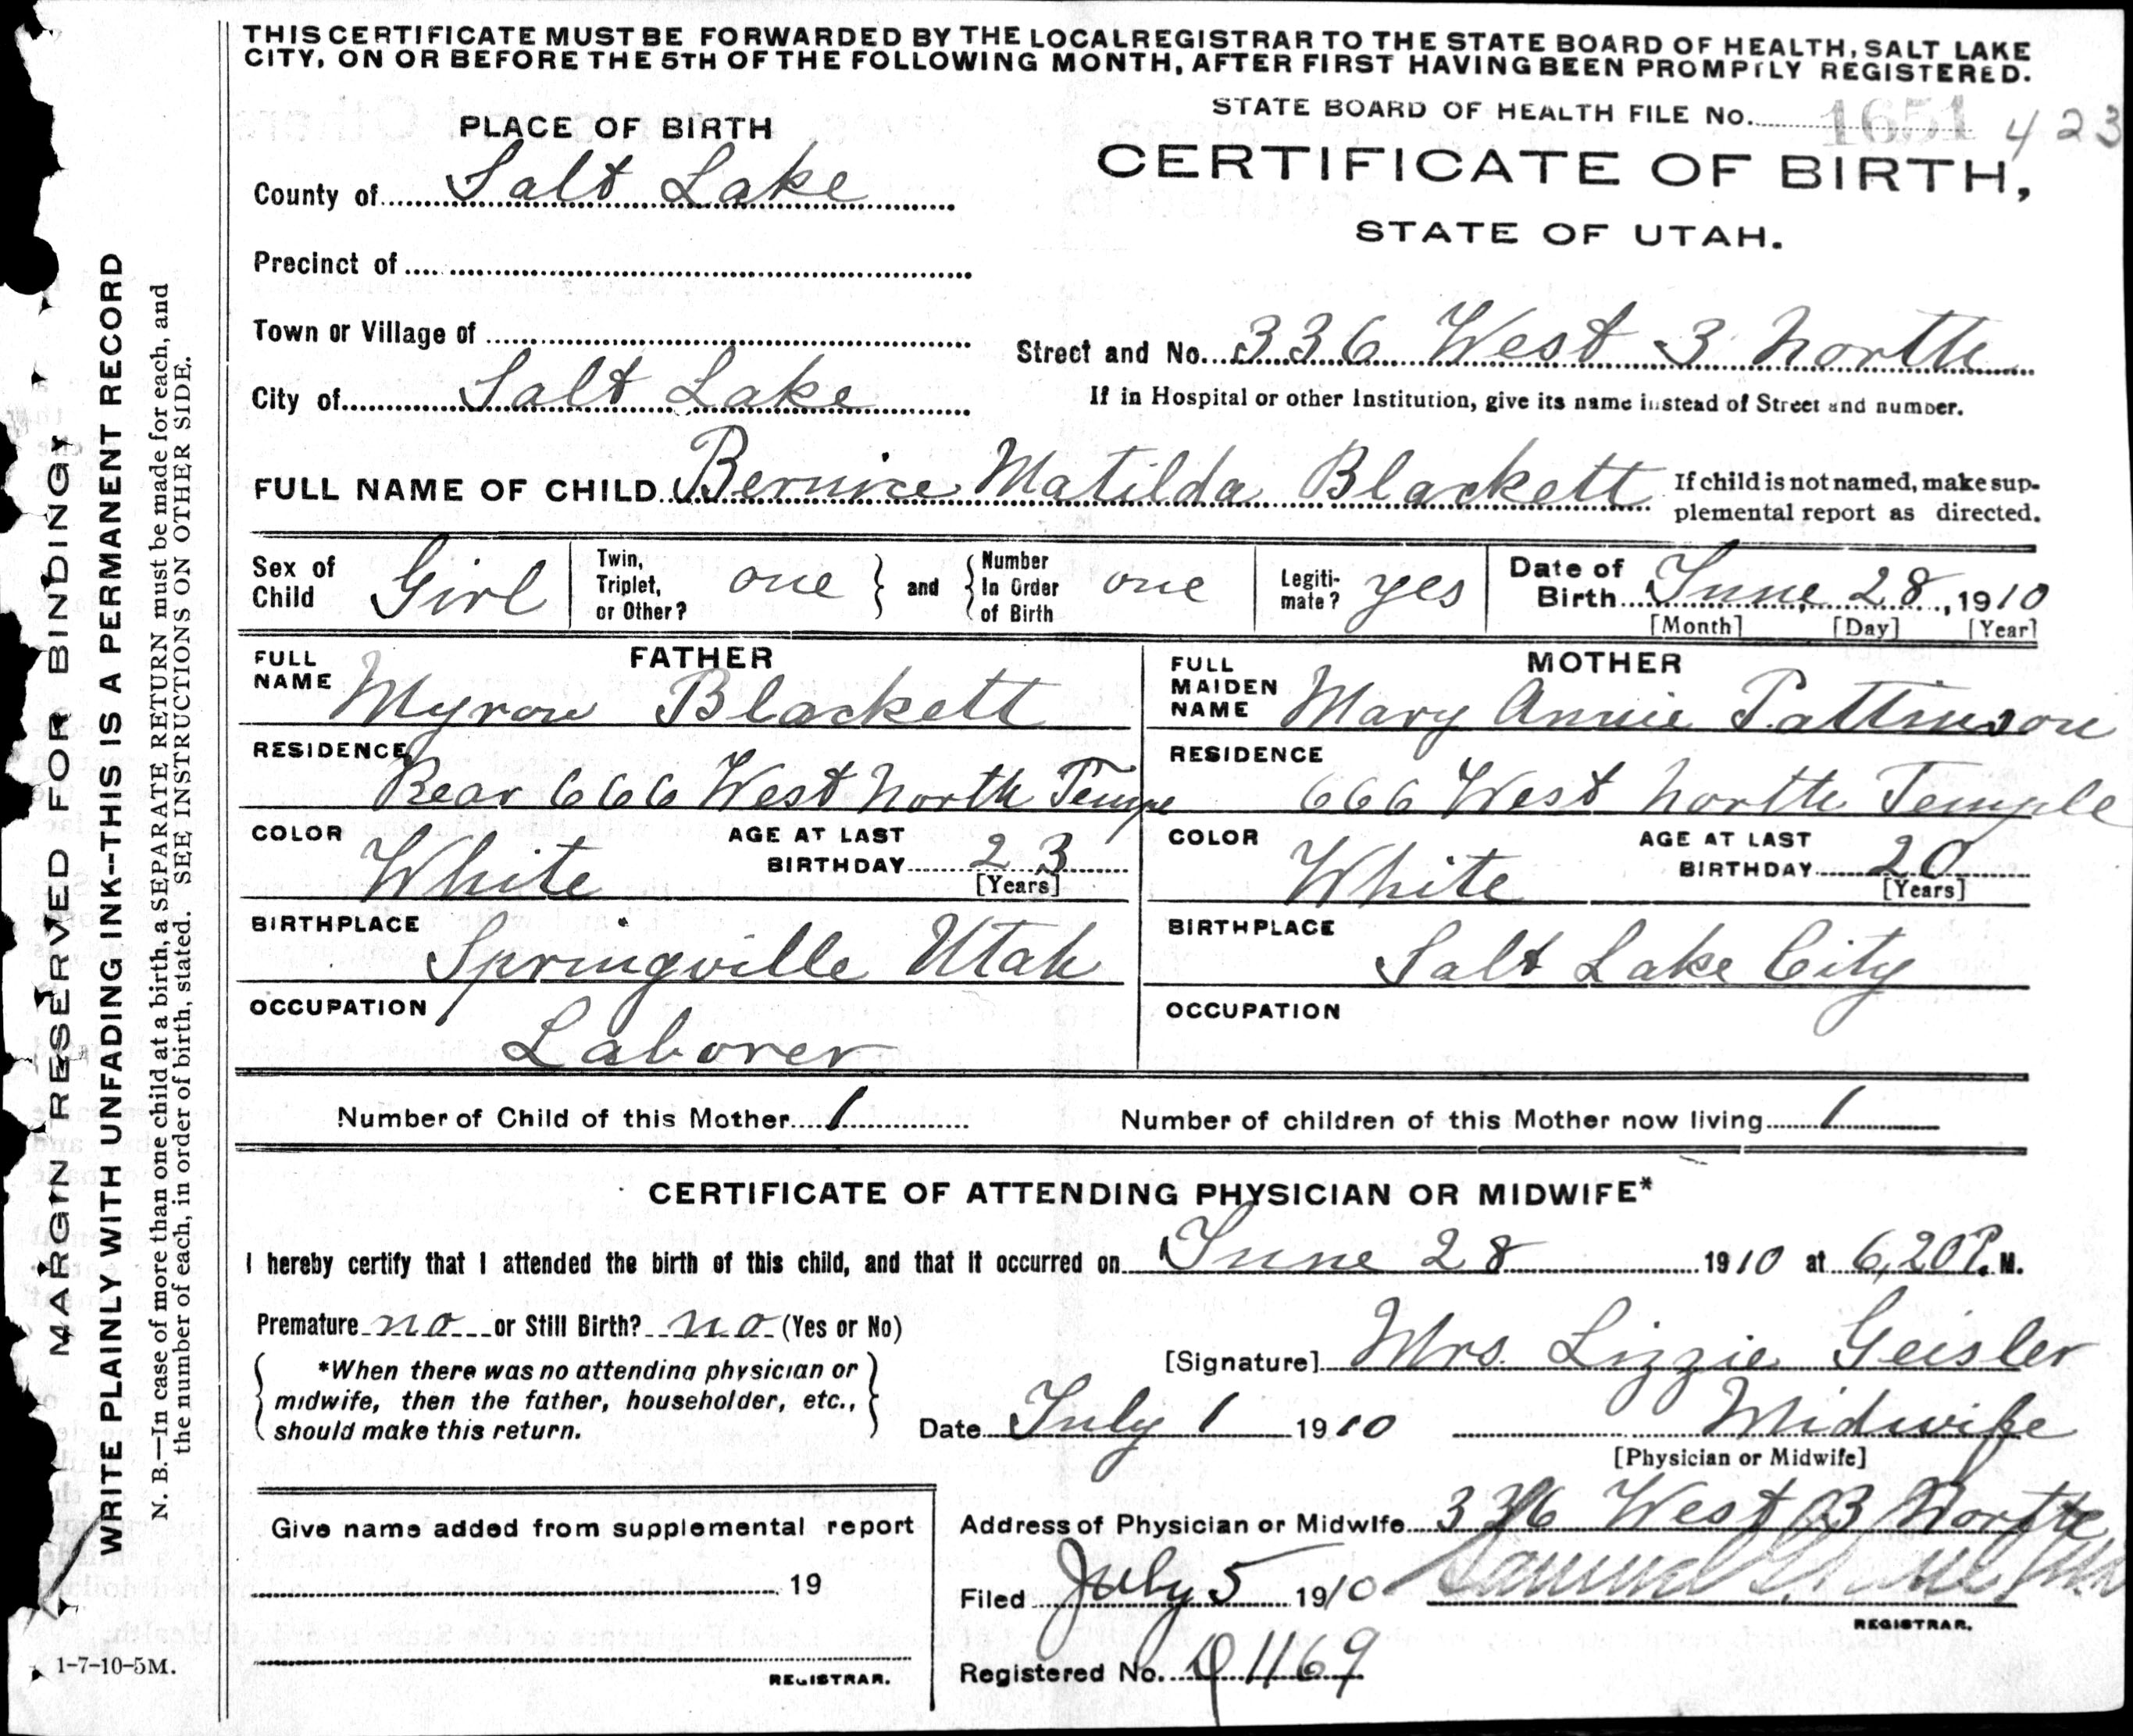 THIS CERTIFICATE MUST BE FORWARDED BY THE LOCAL REGISTRAR TO THE STATE BOARD OF HEALTH, SALT LAKE
CITY, ON OR BEFORE THE 5TH OF THE FOLLOWING MONTH, AFTER FIRST HAVING BEEN PROMPTLY REGISTERED.
STATE BOARD OF HEALTH FILE No. 1651 423
PLACE OF BIRTH
CERTIFICATE OF BIRTH,
STATE OF UTAH.
County of Salt Lake
Precinct of
Town or Village of
Street and No. 336 West 3 North
City of Salt Lake
If in Hospital or other Institution, give its name instead of Street and number.
FULL NAME OF CHILD Bernice Matilda Blackett
If child is not named, make sup-
plemental report as directed.
Sex of Child Girl
Twin, Triplet, or Other? one
and
Number In Order of Birth one
Legiti-mate? yes
Date of Birth June 28, 1910
[Month] [Day] [Year]
FATHER
FULL NAME Myron Blackett
RESIDENCE
Rear 666 West North Temple
COLOR White
AGE AT LAST BIRTHDAY 23
[Years]
BIRTHPLACE
Springville Utah
OCCUPATION
Laborer
MOTHER
FULL MAIDEN NAME Mary Annie Pattinson
RESIDENCE
666 West North Temple
COLOR White
AGE AT LAST BIRTHDAY 20
[Years]
BIRTHPLACE
Salt Lake City
OCCUPATION
Number of Child of this Mother 1
Number of children of this Mother now living 1
CERTIFICATE OF ATTENDING PHYSICIAN OR MIDWIFE*
I hereby certify that I attended the birth of this child, and that it occurred on June 28 1910 at 6,20 P. M.
Premature no or Still Birth? no (Yes or No)
*When there was no attending physician or
midwife, then the father, householder, etc.,
should make this return.
[Signature] Mrs. Lizzie Geisler
Date July 1 1910
Midwife
[Physician or Midwife]
Give name added from supplemental report
19
REGISTRAR.
Address of Physician or Midwife 336 West 3 North
Filed July 5 1910 Samuel
REGISTRAR.
Registered No. 1169
1-7-10-5M.
MARGIN RESERVED FOR BINDING
WRITE PLAINLY WITH UNFADING INK--THIS IS A PERMANENT RECORD
N. B.—In case of more than one child at a birth, a SEPARATE RETURN must be made for each, and
the number of each, in order of birth, stated. SEE INSTRUCTIONS ON OTHER SIDE.